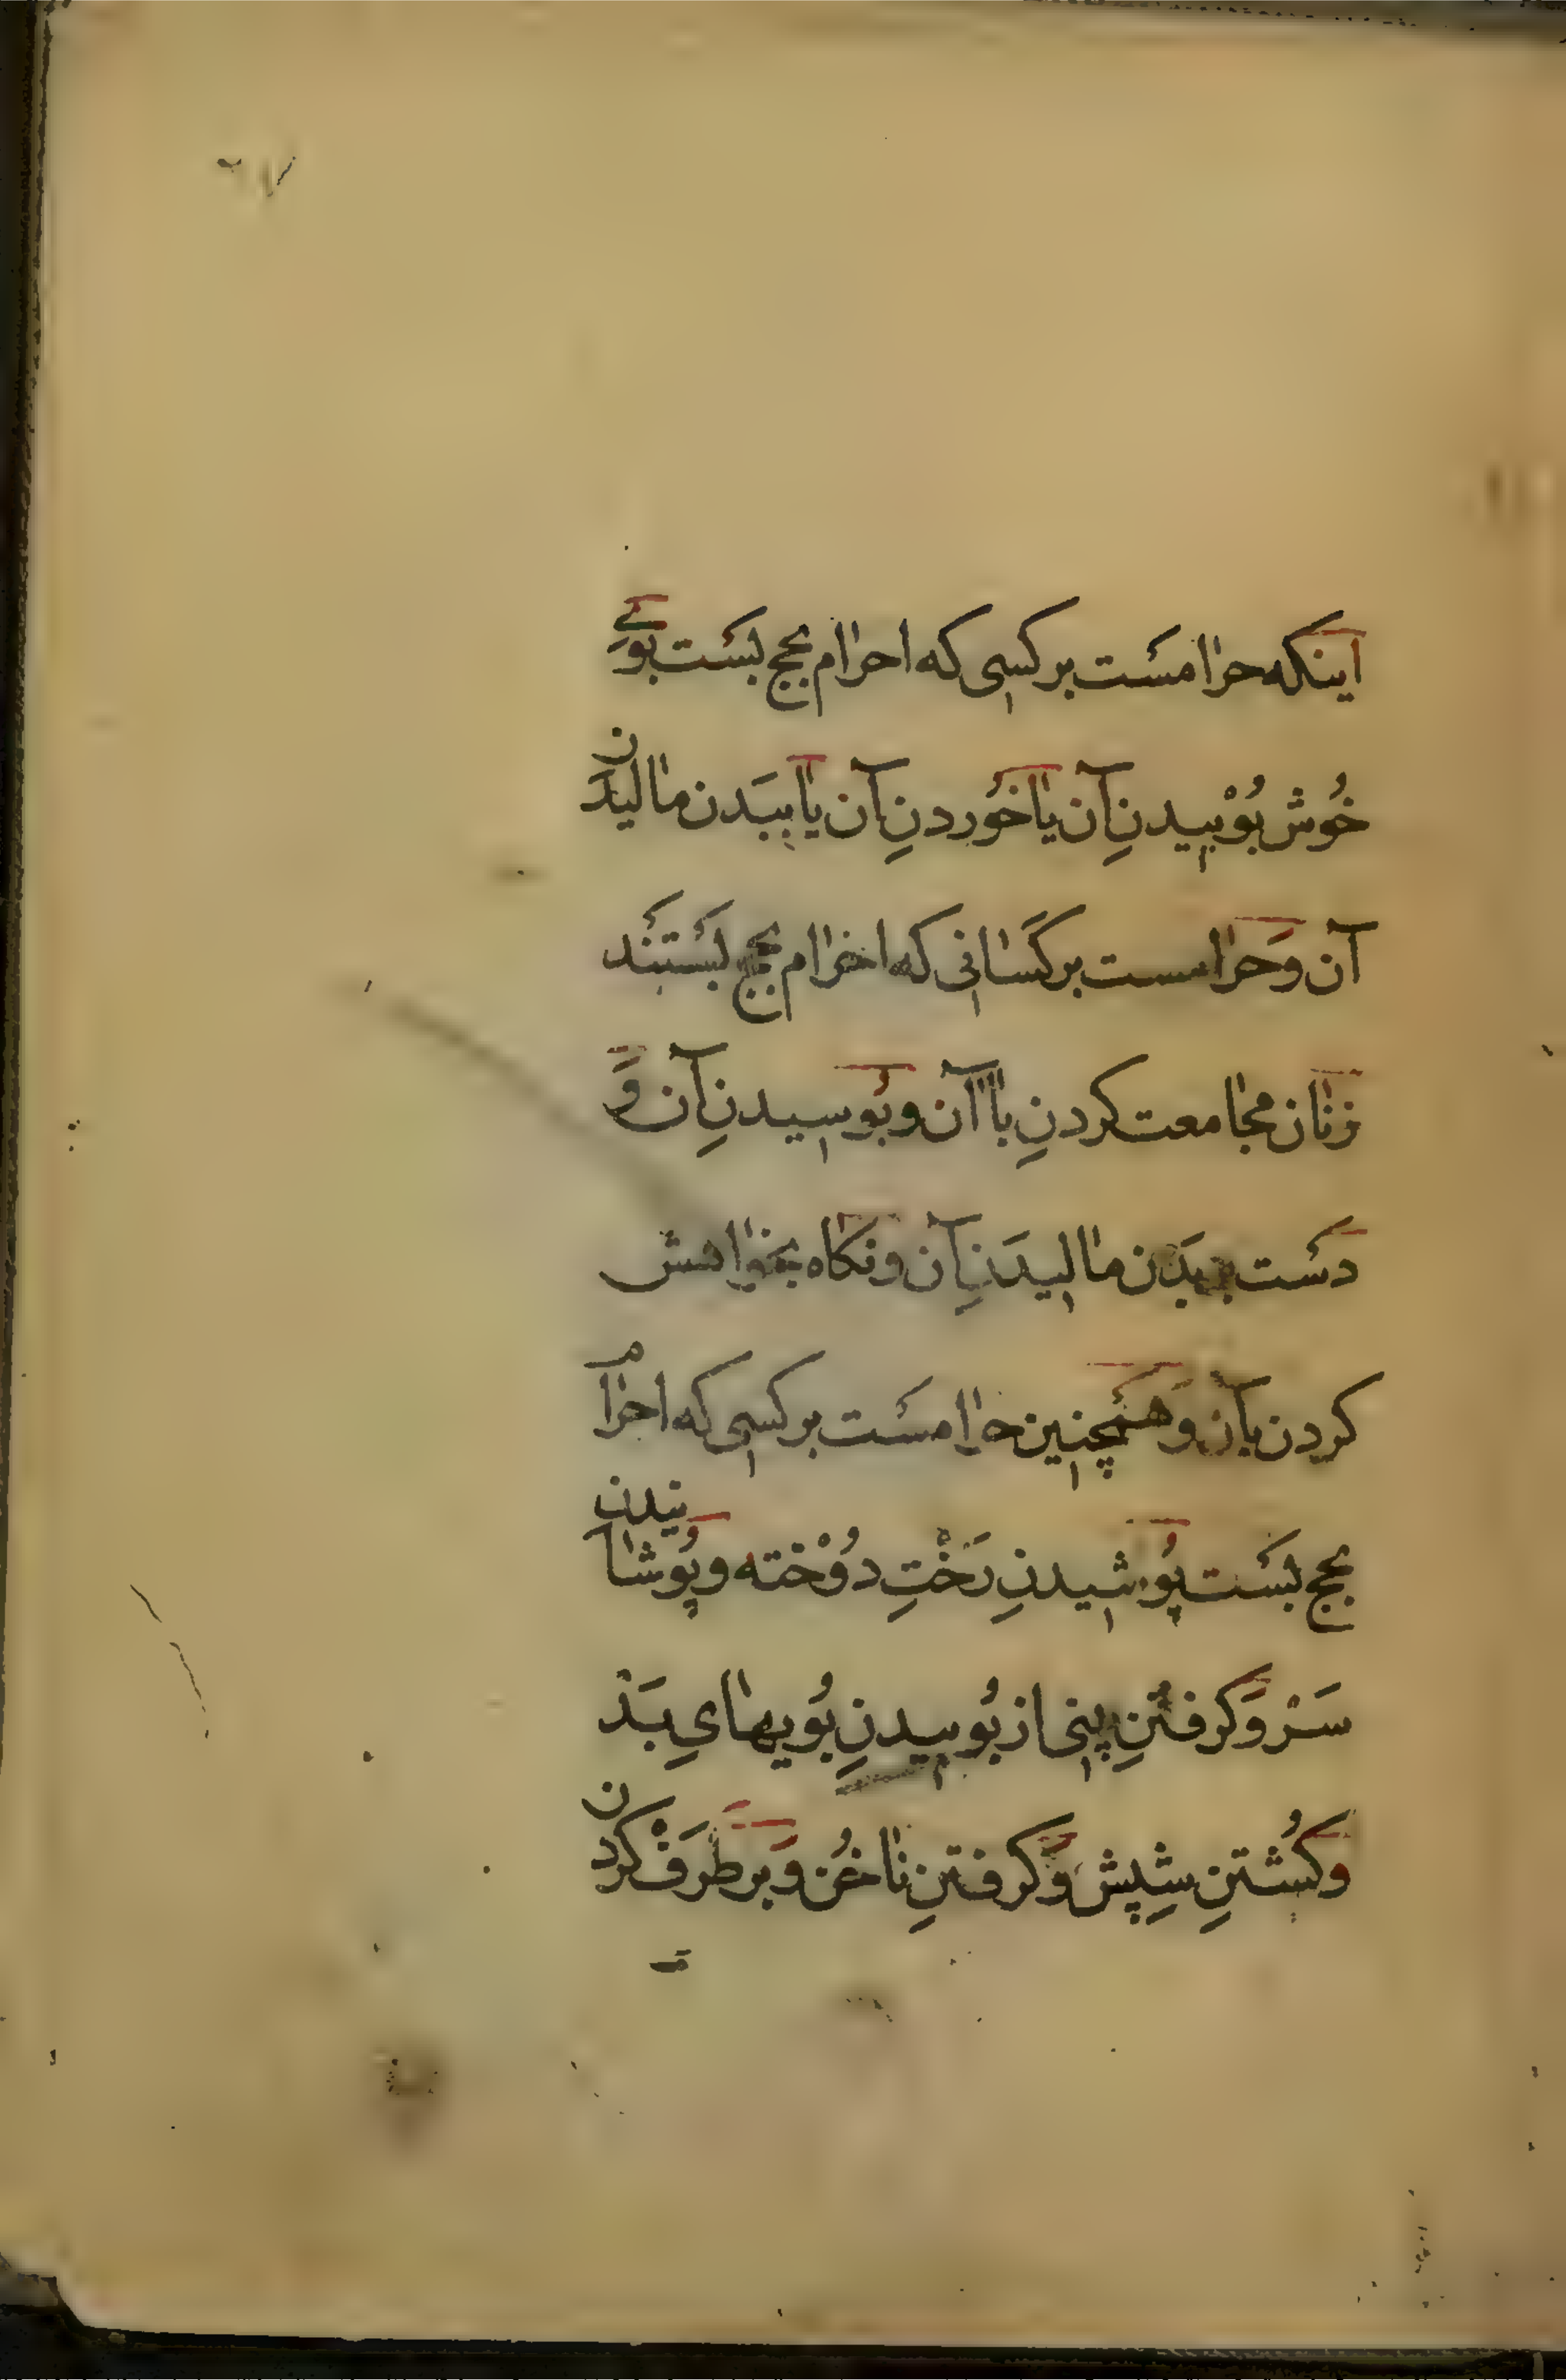 اینکه حرامست بر کسی که احرام بحج بست بویِ
خُوش بُوْییدنِ آن یا خوُردنِ آن یا ببَدن مالیدَن
آن وَحراست بر کَسانی که احرام بحج بَستَند
زنان مجامعت کردنِ با آن و بوُسیدنِ آن وَ
دَست ببَدَن مالیدَنِ آن و نکاه بخواهش
کردن بآن وَ هَمچنین حرامسَت بر کسی که احرام
بحج بَست پوُشیدنِ رَخْتِ دُوْخته و پوُشانیدن
سَرْ وَ کرفتنِ بینی از بوُییدنِ بوُیهایِ بَدْ
و کُشتنِ شِپش وَ کرفتنِ ناخُن وَ بر طَرَفْ کردن